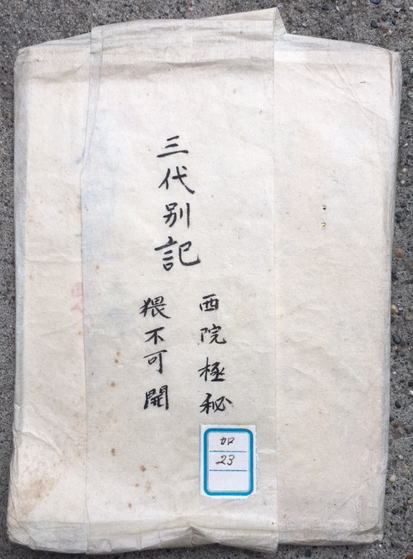 三代別記
西院極秘
猥不可開
加
23